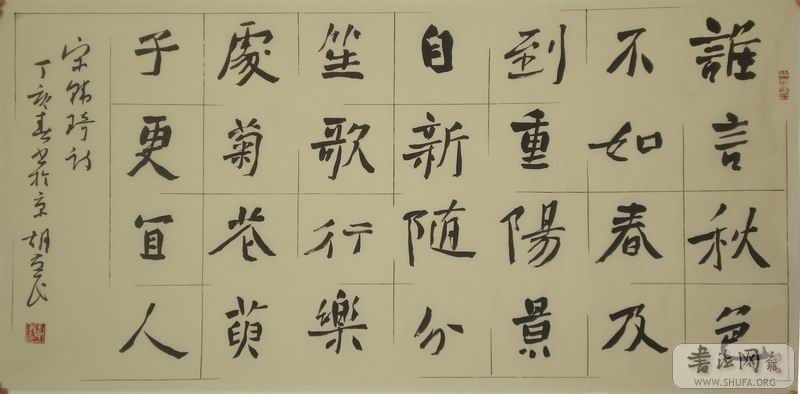 誰言秋色
不如春及
到重陽景
自新随分
笙歌行樂
處菊花萸
子更宜人
宋韩琦詩
丁亥春书於京 胡
書法网
WWW.SHUFA.ORG